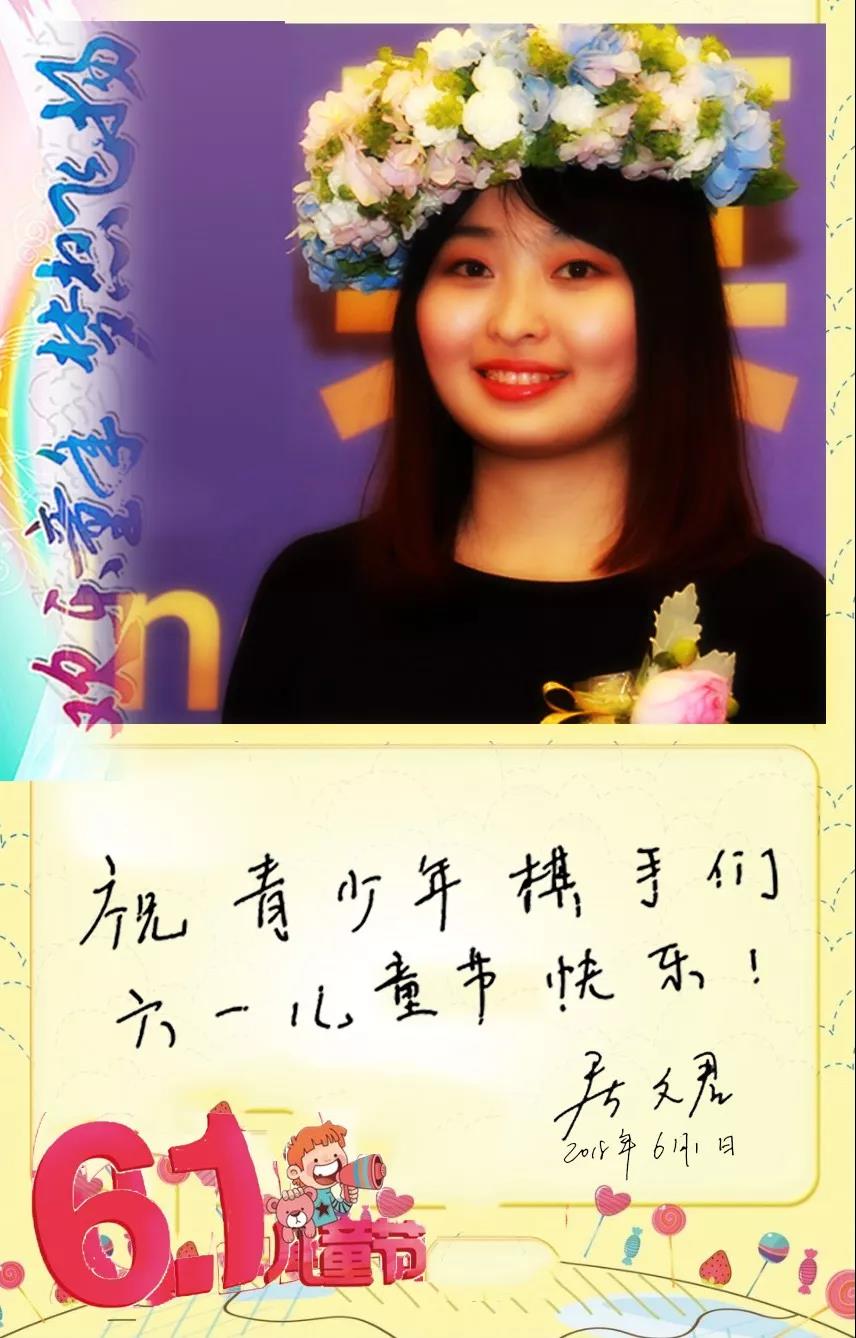 欢乐童年 梦想飞扬
n
祝青少年棋手们
六一儿童节快乐!
居文君
2018年6月1日
6.1儿童节